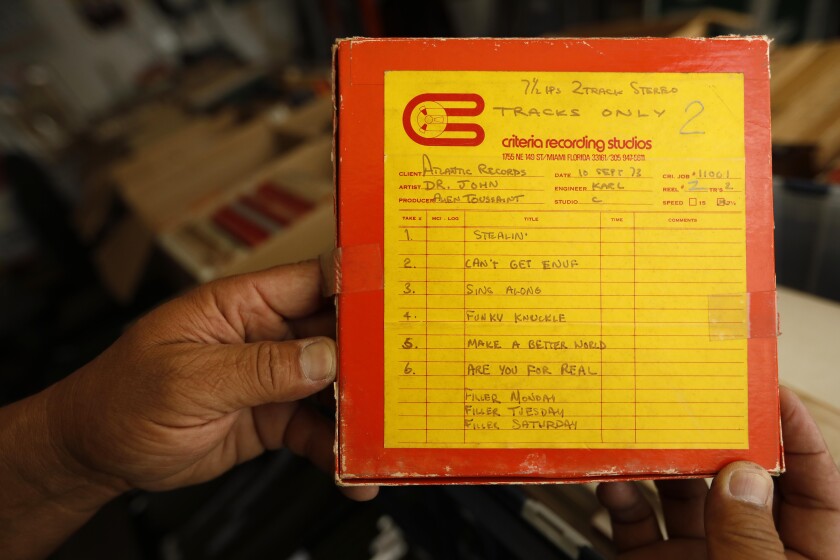 7½ IPS 2 TRACK STEREO
TRACKS ONLY 2
criteria recording studios
1755 NE 149 ST./MIAMI FLORIDA 33181/305 947-5611
CLIENT ATLANTIC RECORDS DATE 10 SEPT 73 CRI. JOB # 11001
ARTIST DR. JOHN ENGINEER KARL REEL # 2 TR'S 2
PRODUCER ALLEN TOUSSAINT STUDIO C SPEED 15 7½
TAKE # MCI - LOG TITLE TIME COMMENTS
1. STEALIN'
2. CAN'T GET ENUF
3. SING ALONG
4. FUNKY KNUCKLE
5. MAKE A BETTER WORLD
6. ARE YOU FOR REAL
FILLER MONDAY
FILLER TUESDAY
FILLER SATURDAY